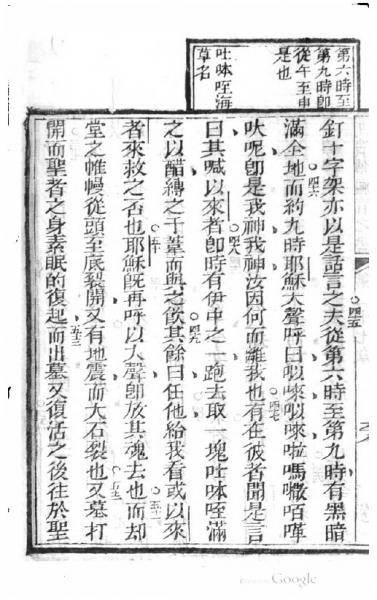 第六時至
第九時即
從午至申
是也
吐㕸咥海
草名
釘十字架亦以是話言之夫從第六時至第九時有黑暗
滿全地而約九時耶穌大聲呼曰以來以來啦嗎撒咟嘆
呔呢即是我神我神汝因何而離我也有在彼者聞是言
曰其喊以來者即時有伊中之一跑去取一塊吐㕸咥滿
之以醋縛之于葦而與之飲其餘曰任他給我看或以來
者來救之否也耶穌既再呼以大聲即放其魂去也而却
堂之帷幔從頭至底裂開又有地震而大石裂也又墓打
開而聖者之身素眠的復起而出墓又復活之後往於聖
四五
四六
四七
四八
四九
五十
五一
五二
五三
Google